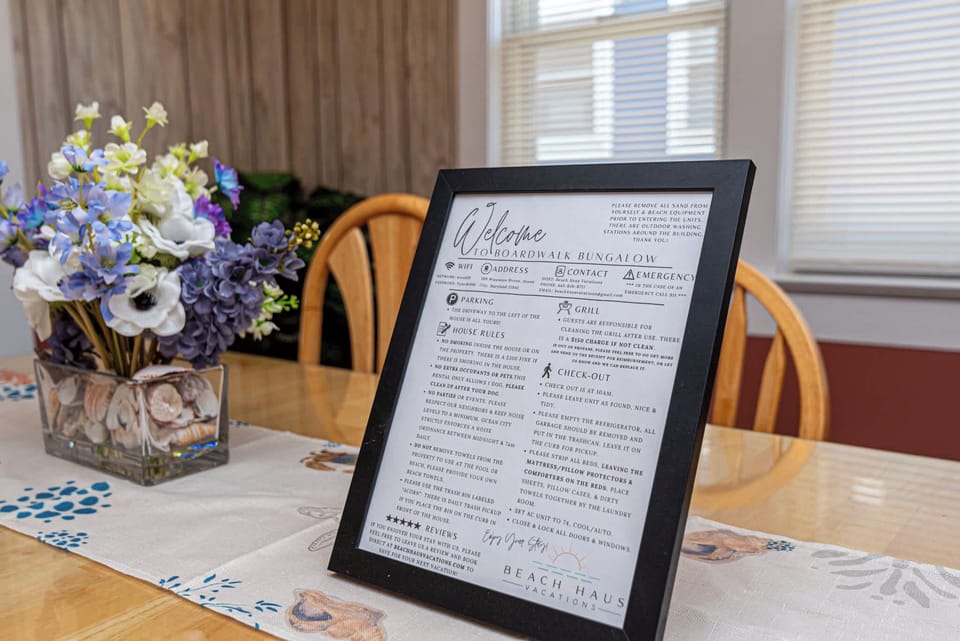 Welcome
TO BOARDWALK BUNGALOW
PLEASE REMOVE ALL SAND FROM
YOURSELF & BEACH EQUIPMENT
PRIOR TO ENTERING THE UNITS.
THERE ARE OUTDOOR WASHING
STATIONS AROUND THE BUILDING.
THANK YOU!
WIFI
ADDRESS
City, Maryland 21842
CONTACT
EMERGENCY
*** IN THE CASE OF AN
EMERGENCY CALL 911 ***
PARKING
• THE DRIVEWAY TO THE LEFT OF THE
HOUSE IS ALL YOURS!
HOUSE RULES
• NO SMOKING INSIDE THE HOUSE OR ON
THE PROPERTY. THERE IS A $500 FINE IF
THERE IS SMOKING IN THE HOUSE.
• NO EXTRA OCCUPANTS OR PETS THIS
RENTAL ONLY ALLOWS 1 DOG. PLEASE
CLEAN UP AFTER YOUR DOG.
• NO PARTIES OR EVENTS. PLEASE
RESPECT OUR NEIGHBORS & KEEP NOISE
LEVELS TO A MINIMUM. OCEAN CITY
STRICTLY ENFORCES A NOISE
ORDINANCE BETWEEN MIDNIGHT & 7AM
DAILY.
• DO NOT REMOVE TOWELS FROM THE
PROPERTY TO USE AT THE POOL OR
BEACH, PLEASE PROVIDE YOUR OWN
BEACH TOWELS.
• PLEASE USE THE TRASH BIN LABELED
"ACORN". THERE IS DAILY TRASH PICKUP
IF YOU PLACE THE BIN ON THE CURB IN
FRONT OF THE HOUSE.
REVIEWS
IF YOU ENJOYED YOUR STAY WITH US, PLEASE
FEEL FREE TO LEAVE US A REVIEW AND BOOK
DIRECT AT BEACHHAUSVACATIONS.COM TO
SAVE FOR YOUR NEXT VACATION!
GRILL
• GUESTS ARE RESPONSIBLE FOR
CLEANING THE GRILL AFTER USE. THERE
IS A $150 CHARGE IF NOT CLEAN.
IF OUT OF PROPANE, PLEASE FEEL FREE TO GET MORE
AND SEND US THE RECEIPT FOR REIMBURSEMENT, OR LET
US KNOW AND WE CAN REPLACE IT.
CHECK-OUT
• CHECK OUT IS AT 10AM.
• PLEASE LEAVE UNIT AS FOUND, NICE &
TIDY.
• PLEASE EMPTY THE REFRIGERATOR, ALL
GARBAGE SHOULD BE REMOVED AND
PUT IN THE TRASHCAN. LEAVE IT ON
THE CURB FOR PICKUP.
• PLEASE STRIP ALL BEDS, LEAVING THE
MATTRESS/PILLOW PROTECTORS &
COMFORTERS ON THE BEDS. PLACE
SHEETS, PILLOW CASES, & DIRTY
TOWELS TOGETHER BY THE LAUNDRY
ROOM.
• SET AC UNIT TO 74, COOL/AUTO.
• CLOSE & LOCK ALL DOORS & WINDOWS.
Enjoy Your Stay!
BEACH HAUS
VACATIONS